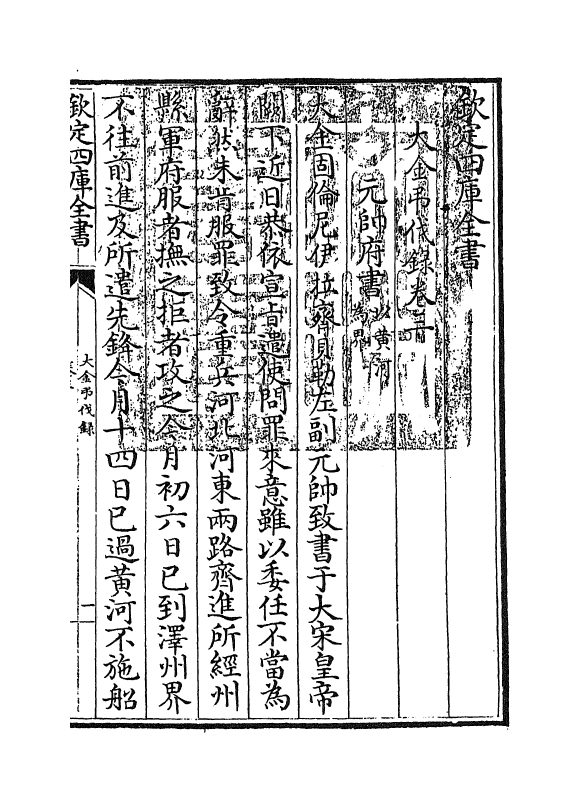 欽定四庫全書
大金弔伐錄卷二
元帥府書以黃河為界
大金固倫尼伊拉齊貝勒左副元帥致書于大宋皇帝
闕下近日恭依宣旨遣使問罪來意雖以委任不當為
辭然未肯服罪致令重兵河北河東兩路齊進所經州
縣軍府服者撫之拒者攻之今月初六日已到澤州界
不往前進及所遣先鋒今月十四日已過黃河不施船
欽定四庫全書
大金弔伐錄
一